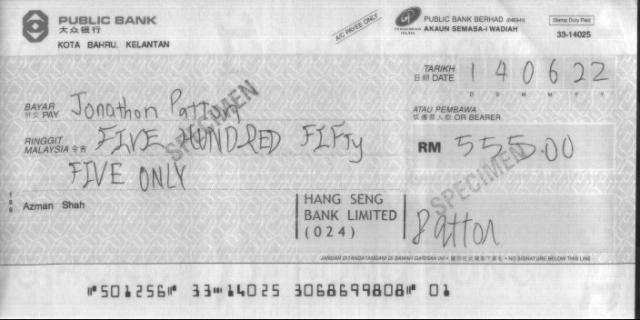 PUBLIC BANK
大众银行
KOTA BAHRU, KELANTAN
A/C PAYEE ONLY
PUBLIC BANK BERHAD
AKAUN SEMASA-i WADIAH
Stamp Duty Paid
33-14025
TARIKH
日期 DATE 1 4 0 6 2 2
D D M M Y Y
BAYAR
PAY Jonathon Pattung
ATAU PEMBAWA
OR BEARER
SPECIMEN
RINGGIT
MALAYSIA FIVE HUNDRED FIFTY
FIVE ONLY
RM 555.00
SPECIMEN
Azman Shah
HANG SENG
BANK LIMITED
(024)
Patton
JANGAN DITANDATANGANI DI BAWAH GARISAN INI • NO SIGNATURE BELOW THIS LINE
⑈501256⑈ 33⑉14025 3068699808⑈ 01